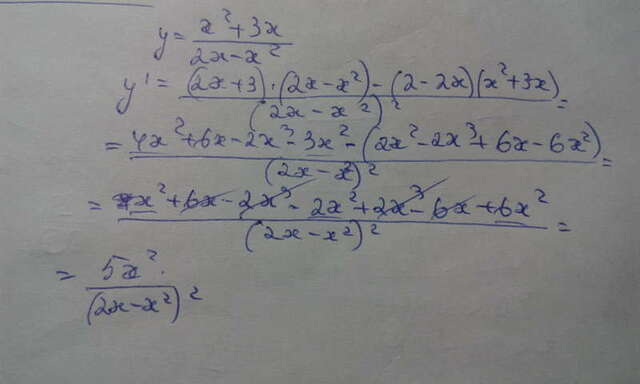 y = (x² + 3x) / (2x - x²)
y' = ((2x + 3) · (2x - x²) - (2 - 2x)(x² + 3x)) / (2x - x²)² =
= (4x² + 6x - 2x³ - 3x² - (2x² - 2x³ + 6x - 6x²)) / (2x - x)² =
= (x² + 6x - 2x³ - 2x² + 2x³ - 6x + 6x²) / (2x - x²)² =
= 5x² / (2x - x²)²